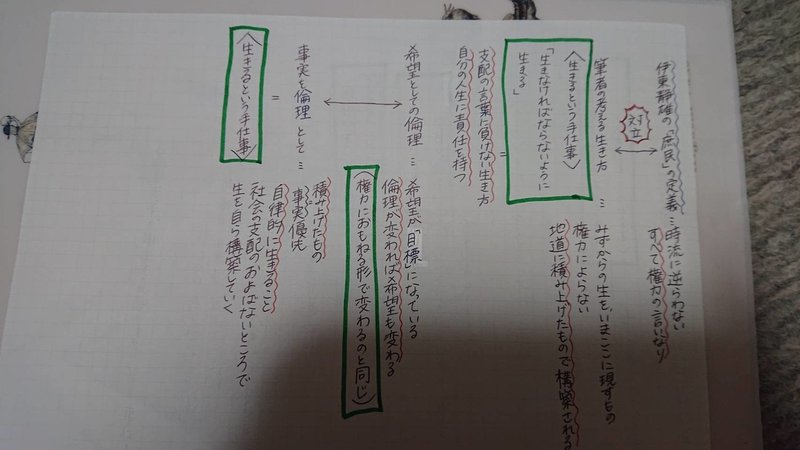 伊東静雄の「庶民」の定義…時流に逆らわない
すべて権力の言いなり
対立
筆者の考える生き方…みずからの生を、いまここに現すもの
権力によらない
地道に積み上げたもので構築される
〈生きるという手仕事〉
「生きなければならないように
生きる」
=
支配の言葉に負けない生き方
自分の人生に責任を持つ
希望としての倫理…希望が「目標」になっている
倫理が変われば希望も変わる
(権力におもねる形で変わるのと同じ)
事実を倫理として…積み上げたもの
事実優先
=
自律的に生きること
社会の支配のおよばないところで
生を自ら構築していく
〈生きるという手仕事〉